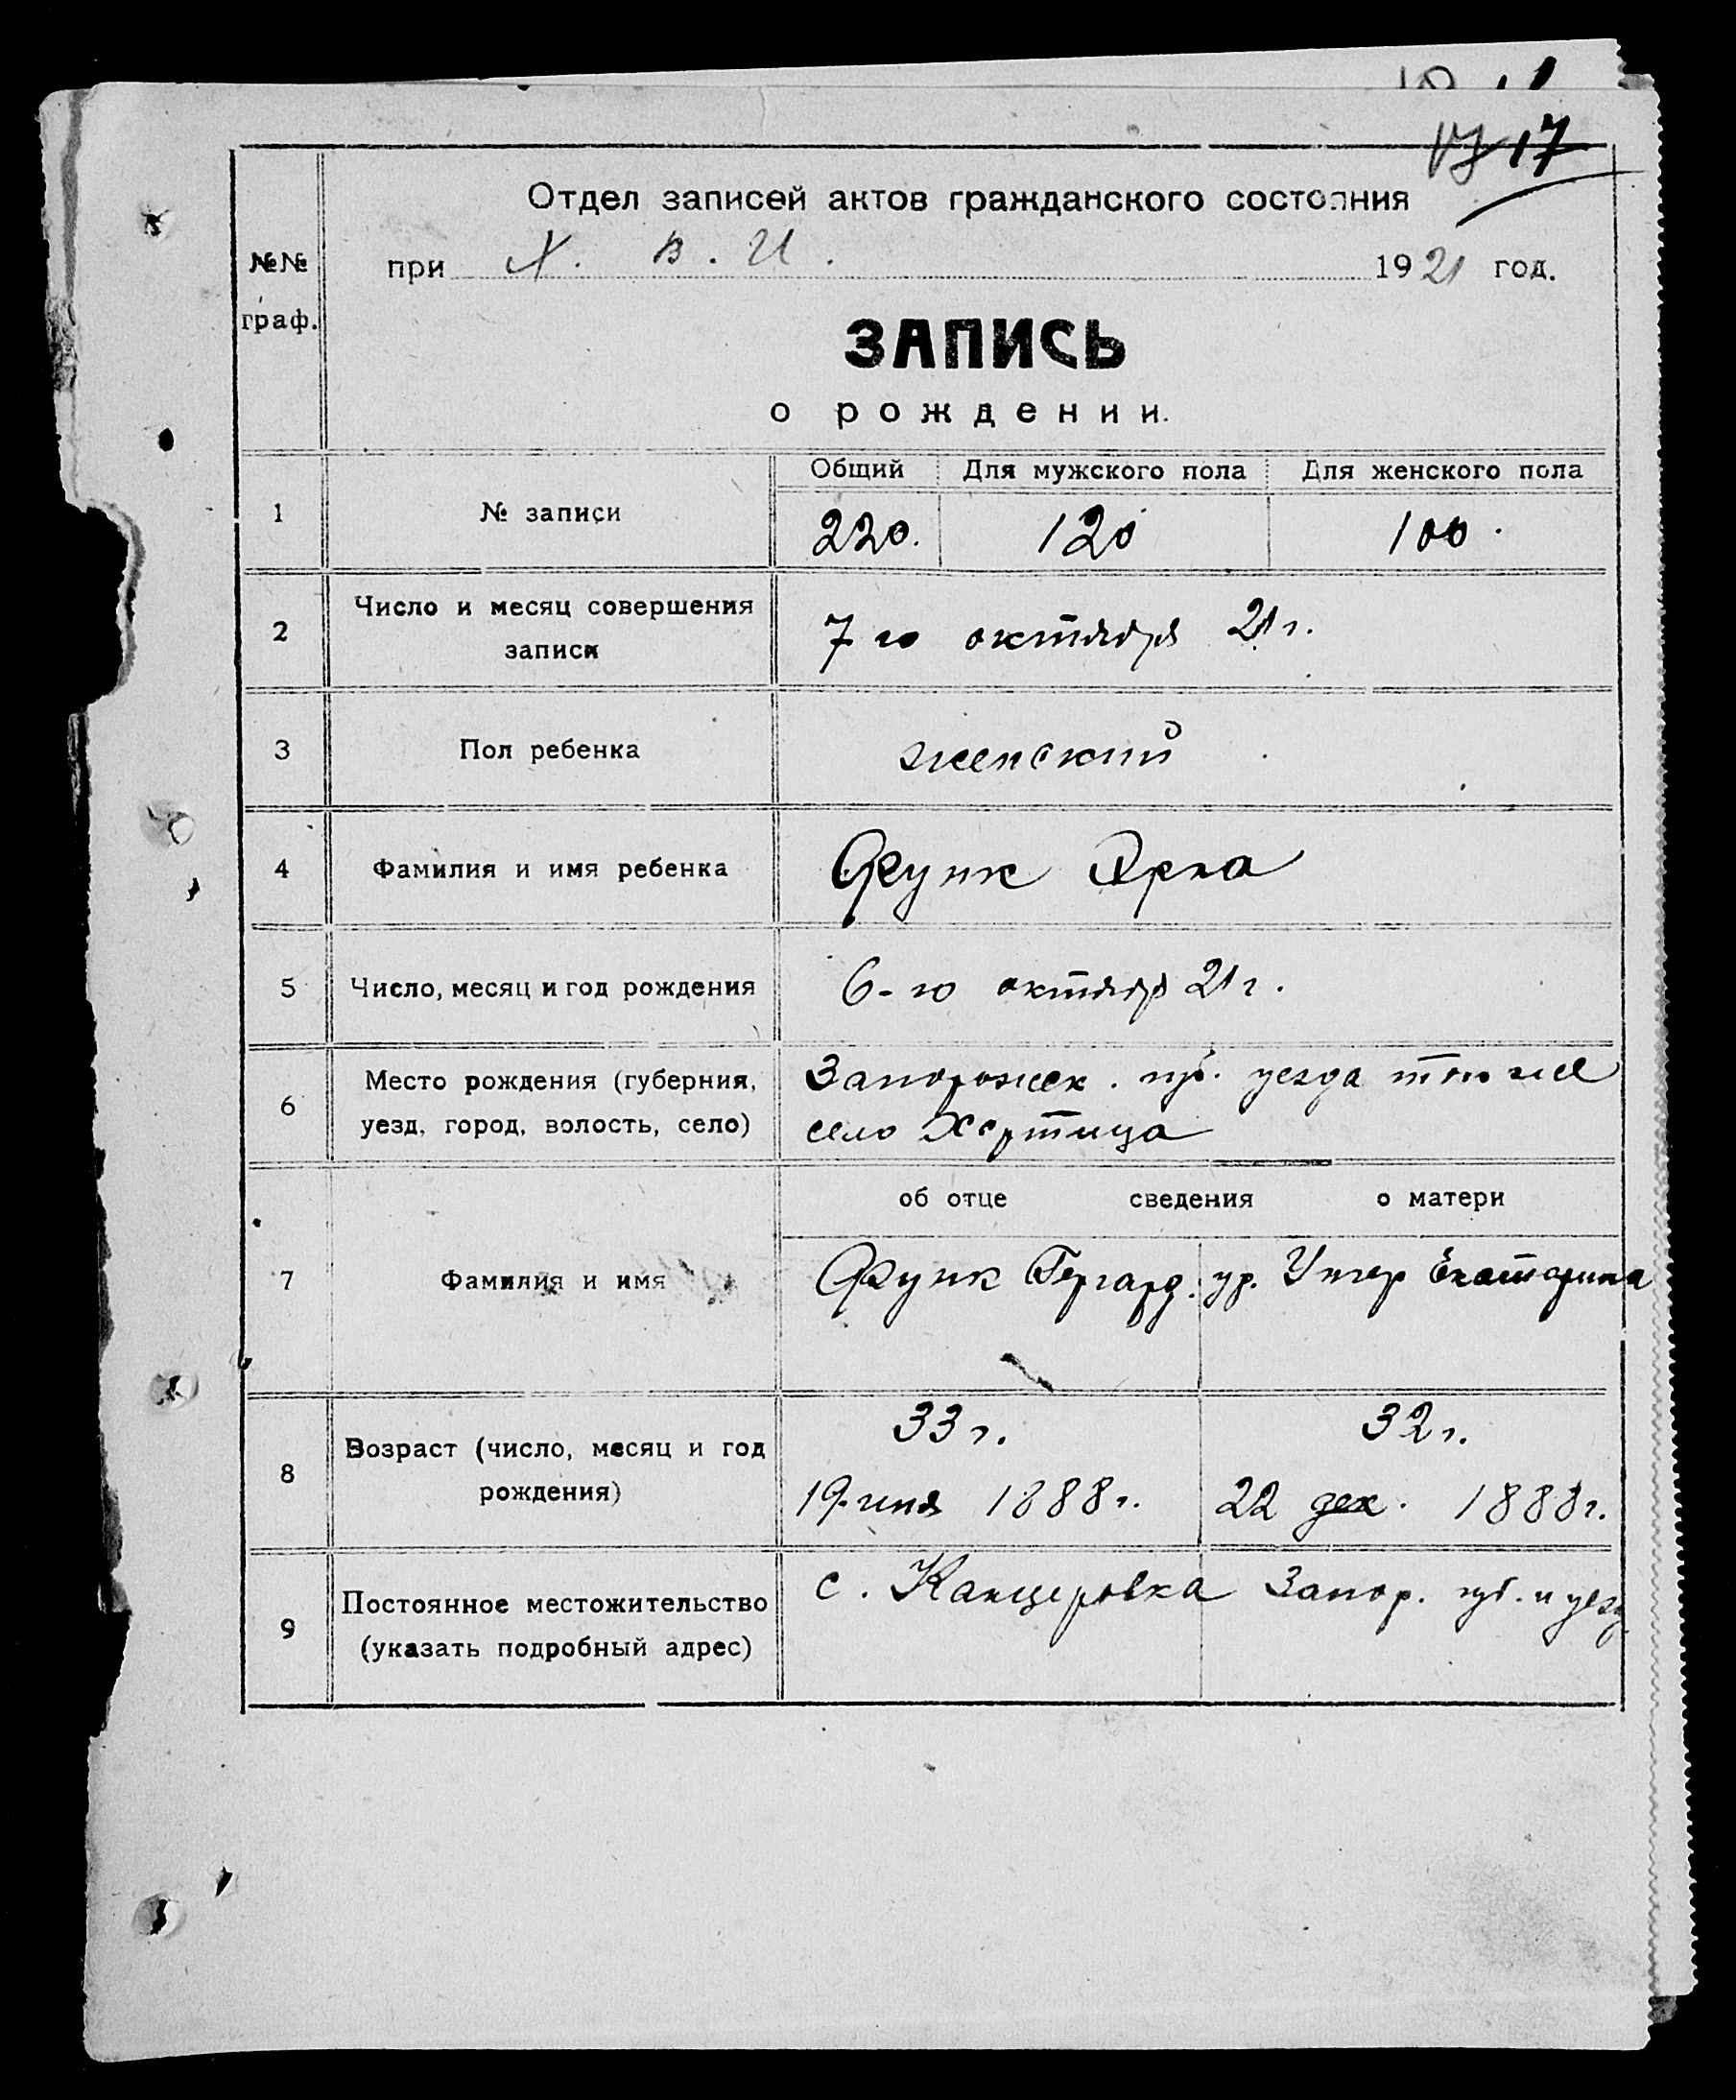 17 17
Отдел записей актов гражданского состояния
№№ граф.
при Х. В. И. 1921 год.
ЗАПИСЬ
о рождении.
Общий Для мужского пола Для женского пола
1 № записи 220. 120 100.
2 Число и месяц совершения записи 7 го октября 21 г.
3 Пол ребенка женский
4 Фамилия и имя ребенка Функ
5 Число, месяц и год рождения 6-го октября 21 г.
6 Место рождения (губерния, Запорожск. губ. уезда того же
уезд, город, волость, село) село Хортица
об отце сведения о матери
7 Фамилия и имя Функ Гергард. ур. Унгер Екатерина
33 г. 32 г.
8 Возраст (число, месяц и год
рождения) 19 июня 1888 г. 22 дек. 1888 г.
9 Постоянное местожительство с. Канцеровка Запор. губ. и уезд
(указать подробный адрес)